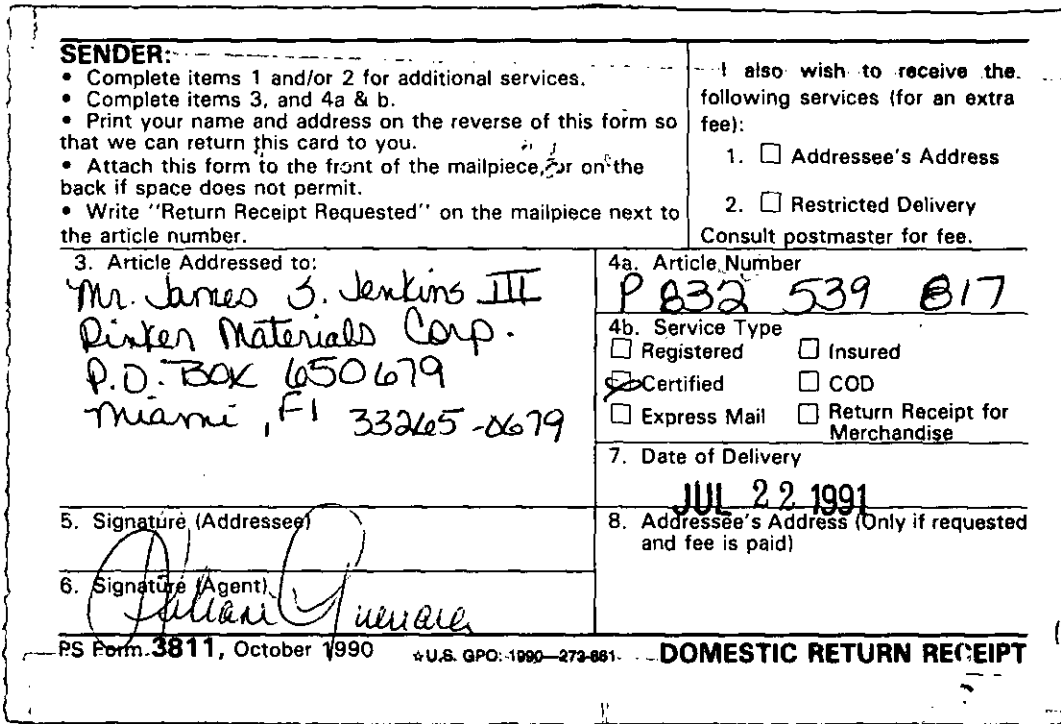 SENDER:
• Complete items 1 and/or 2 for additional services.
• Complete items 3, and 4a & b.
• Print your name and address on the reverse of this form so
that we can return this card to you.
• Attach this form to the front of the mailpiece, or on the
back if space does not permit.
• Write "Return Receipt Requested" on the mailpiece next to
the article number.
I also wish to receive the
following services (for an extra
fee):
1. ☐ Addressee's Address
2. ☐ Restricted Delivery
Consult postmaster for fee.
3. Article Addressed to:
Mr. James S. Jenkins III
Rinker Materials Corp.
P.O. Box 650679
Miami, Fl 33265-0679
4a. Article Number
P 832 539 817
4b. Service Type
☐ Registered ☐ Insured
Certified ☐ COD
☐ Express Mail ☐ Return Receipt for
Merchandise
7. Date of Delivery
JUL 22 1991
5. Signature (Addressee)
8. Addressee's Address (Only if requested
and fee is paid)
6. Signature (Agent)
PS Form 3811, October 1990 ☆U.S. GPO: 1990—273-861 DOMESTIC RETURN RECEIPT